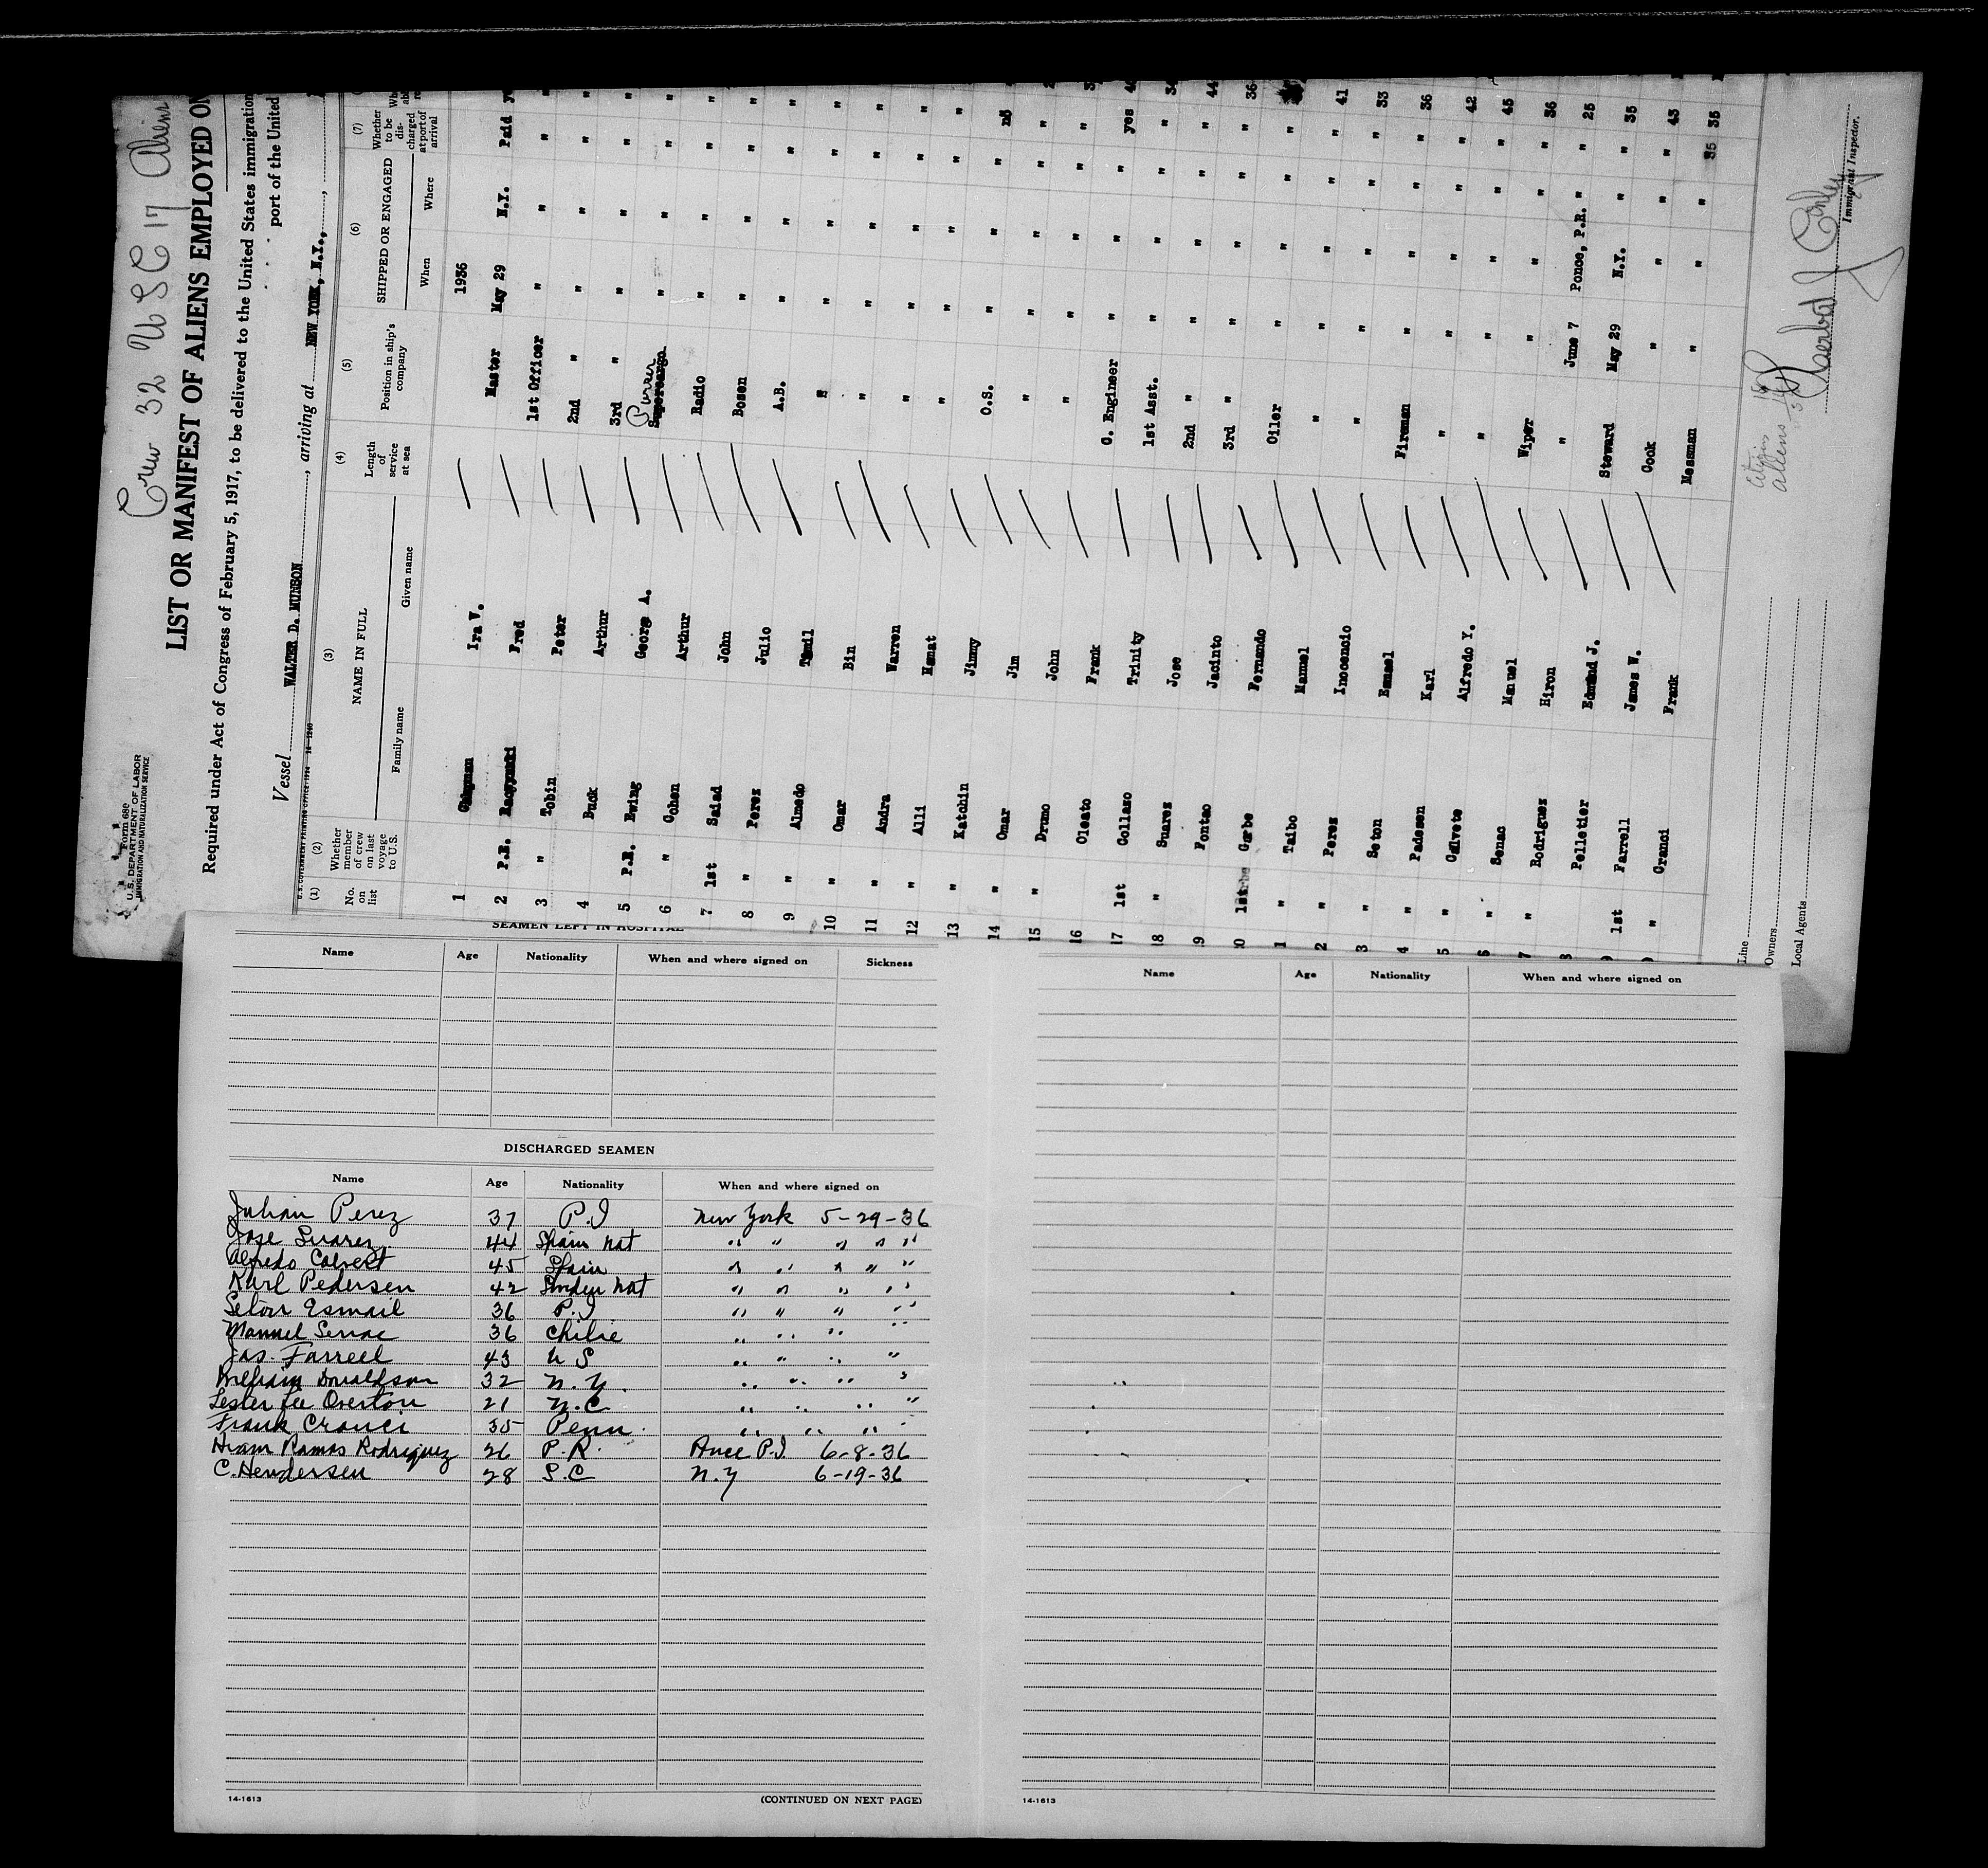 Crew 32 U S C 17 Aliens
Form 680
U.S. DEPARTMENT OF LABOR
IMMIGRATION AND NATURALIZATION SERVICE
LIST OR MANIFEST OF ALIENS EMPLOYED ON
Required under Act of Congress of February 5, 1917, to be delivered to the United States immigration
port of the United
Vessel WALTER D. MUNSON, arriving at NEW YORK, N.Y.,
(1) No. on list (2) Whether member of crew on last voyage to U.S. (3) NAME IN FULL Family name Given name (4) Length of service at sea (5) Position in ship's company (6) SHIPPED OR ENGAGED When Where (7) Whether to be discharged at port of arrival
1936
1 Ira V. Master May 29 N.Y. Paid
2 P.R. Fred 1st Officer " " "
3 " Tobin Peter 2nd " " " "
4 Buck Arthur 3rd " " " "
5 P.R. Ewing George A. Purser " " "
6 " Cohen Arthur Radio " " "
7 1st Saiad John Bosen " " "
8 " Perez Julio A.B. " " "
9 " Almedo " " " "
10 " Omar Bin " " " "
11 " Andra Warren " " " "
12 " Alli " " " "
13 " Katchin Jimmy O.S. " " " no
14 " Omar Jim " " " " "
15 " Drumo John " " " " "
16 Oleato Frank C. Engineer " " " yes
17 1st Collazo Trinity 1st Asst. " " " "
18 " Suarez Jose 2nd " " " " "
9 Fontao Jacinto 3rd " " " "
0 Fernando Oiler " " "
1 " Taibo Manuel " " " "
2 " Perez Inocencio " " " "
3 " Seton Fireman " " "
4 " Padesen Karl " " " "
5 " Alfredo Y. " " " "
6 " Senac Manuel Wiper " " "
7 " Rodriguez Hiron " June 7 Ponce, P.R. "
Pelletier Edmund J. Steward May 29 N.Y. "
1st Farrell James W. Cook " " "
" Cranci Frank Messman " "
Line
Owners
Local Agents
Immigrant Inspector.
SEAMEN LEFT IN HOSPITAL
Name Age Nationality When and where signed on Sickness
DISCHARGED SEAMEN
Name Age Nationality When and where signed on
Julian Perez 37 P.I New York 5-29-36
Jose Suarez 44 Spain Nat " " " " "
Alfredo Calvert 45 Spain " " " " "
Karl Pedersen 42 Sweden Nat " " " "
Seton Esmail 36 P.I " " " "
Manuel Senac 36 Chilie " " " "
Jas. Farrell 43 U S " " " "
William Donaldson 32 N.Y. " " " "
Lester Lee Overton 21 N.C " " " "
Frank Cranci 35 Penn. " " " "
Hiram Ramos Rodriguez 26 P.R. 6-8-36
C. Hendersen 28 S.C N.Y 6-19-36
14-1613
(CONTINUED ON NEXT PAGE)
Name Age Nationality When and where signed on
14-1613